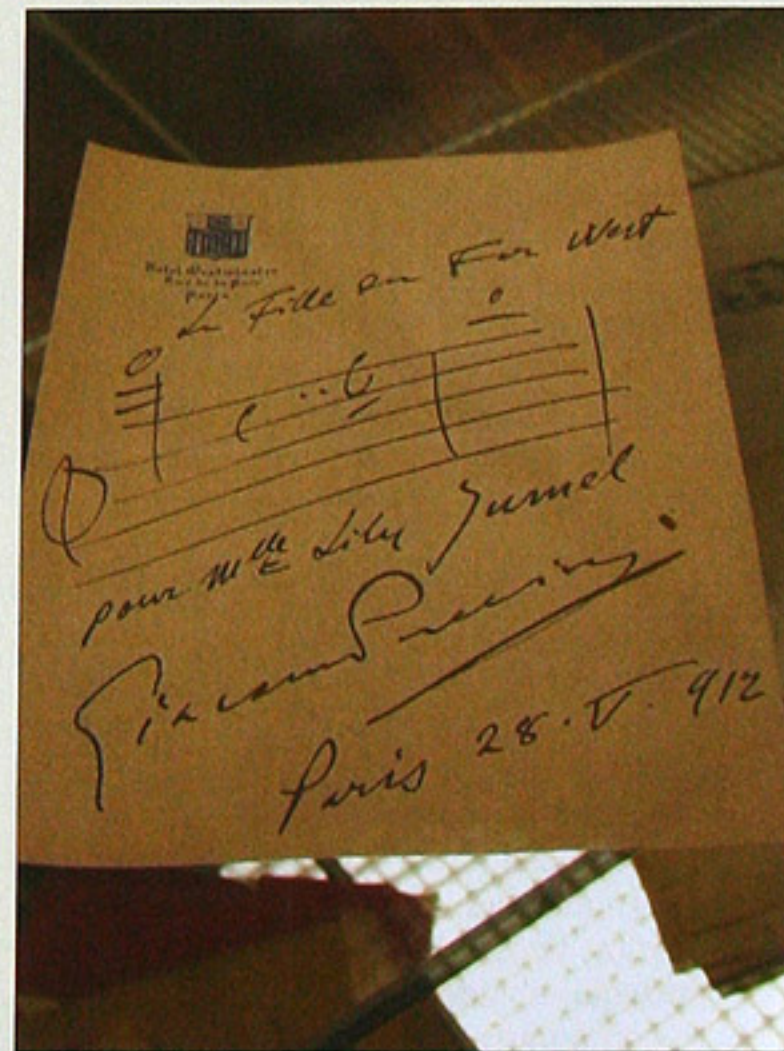 Hotel Westminster
Rue de la Paix
Paris
La Fille du Far West
pour Mlle Lily Jumel
Giacomo Puccini
Paris 28.V.912